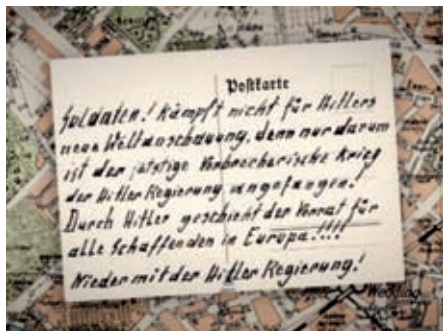 Postkarte
Soldaten! Kämpft nicht für Hitlers
neue Weltanschauung, denn nur darum
ist der jetstige Verbrecherische Krieg
der Hitler Regierung angefangen!
Durch Hitler geschieht der Verrat für
alle Schaffenden in Europa!!!!
Nieder mit der Hitler Regierung!
Wedding